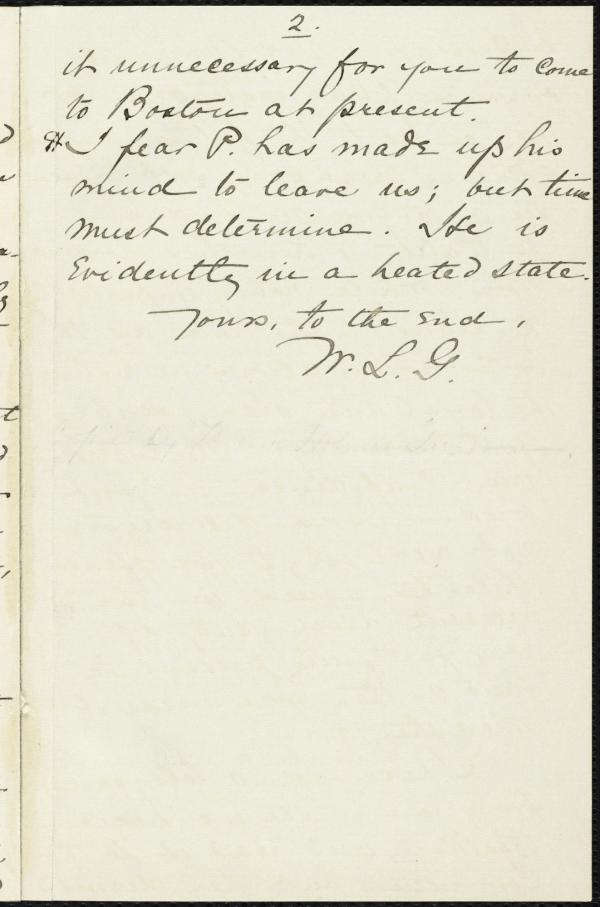 2.
it unnecessary for you to come
to Boston at present.
I fear P. has made up his
mind to leave us; but time
must determine. He is
Evidently in a heated state.
Yours, to the End,
W. L. G.